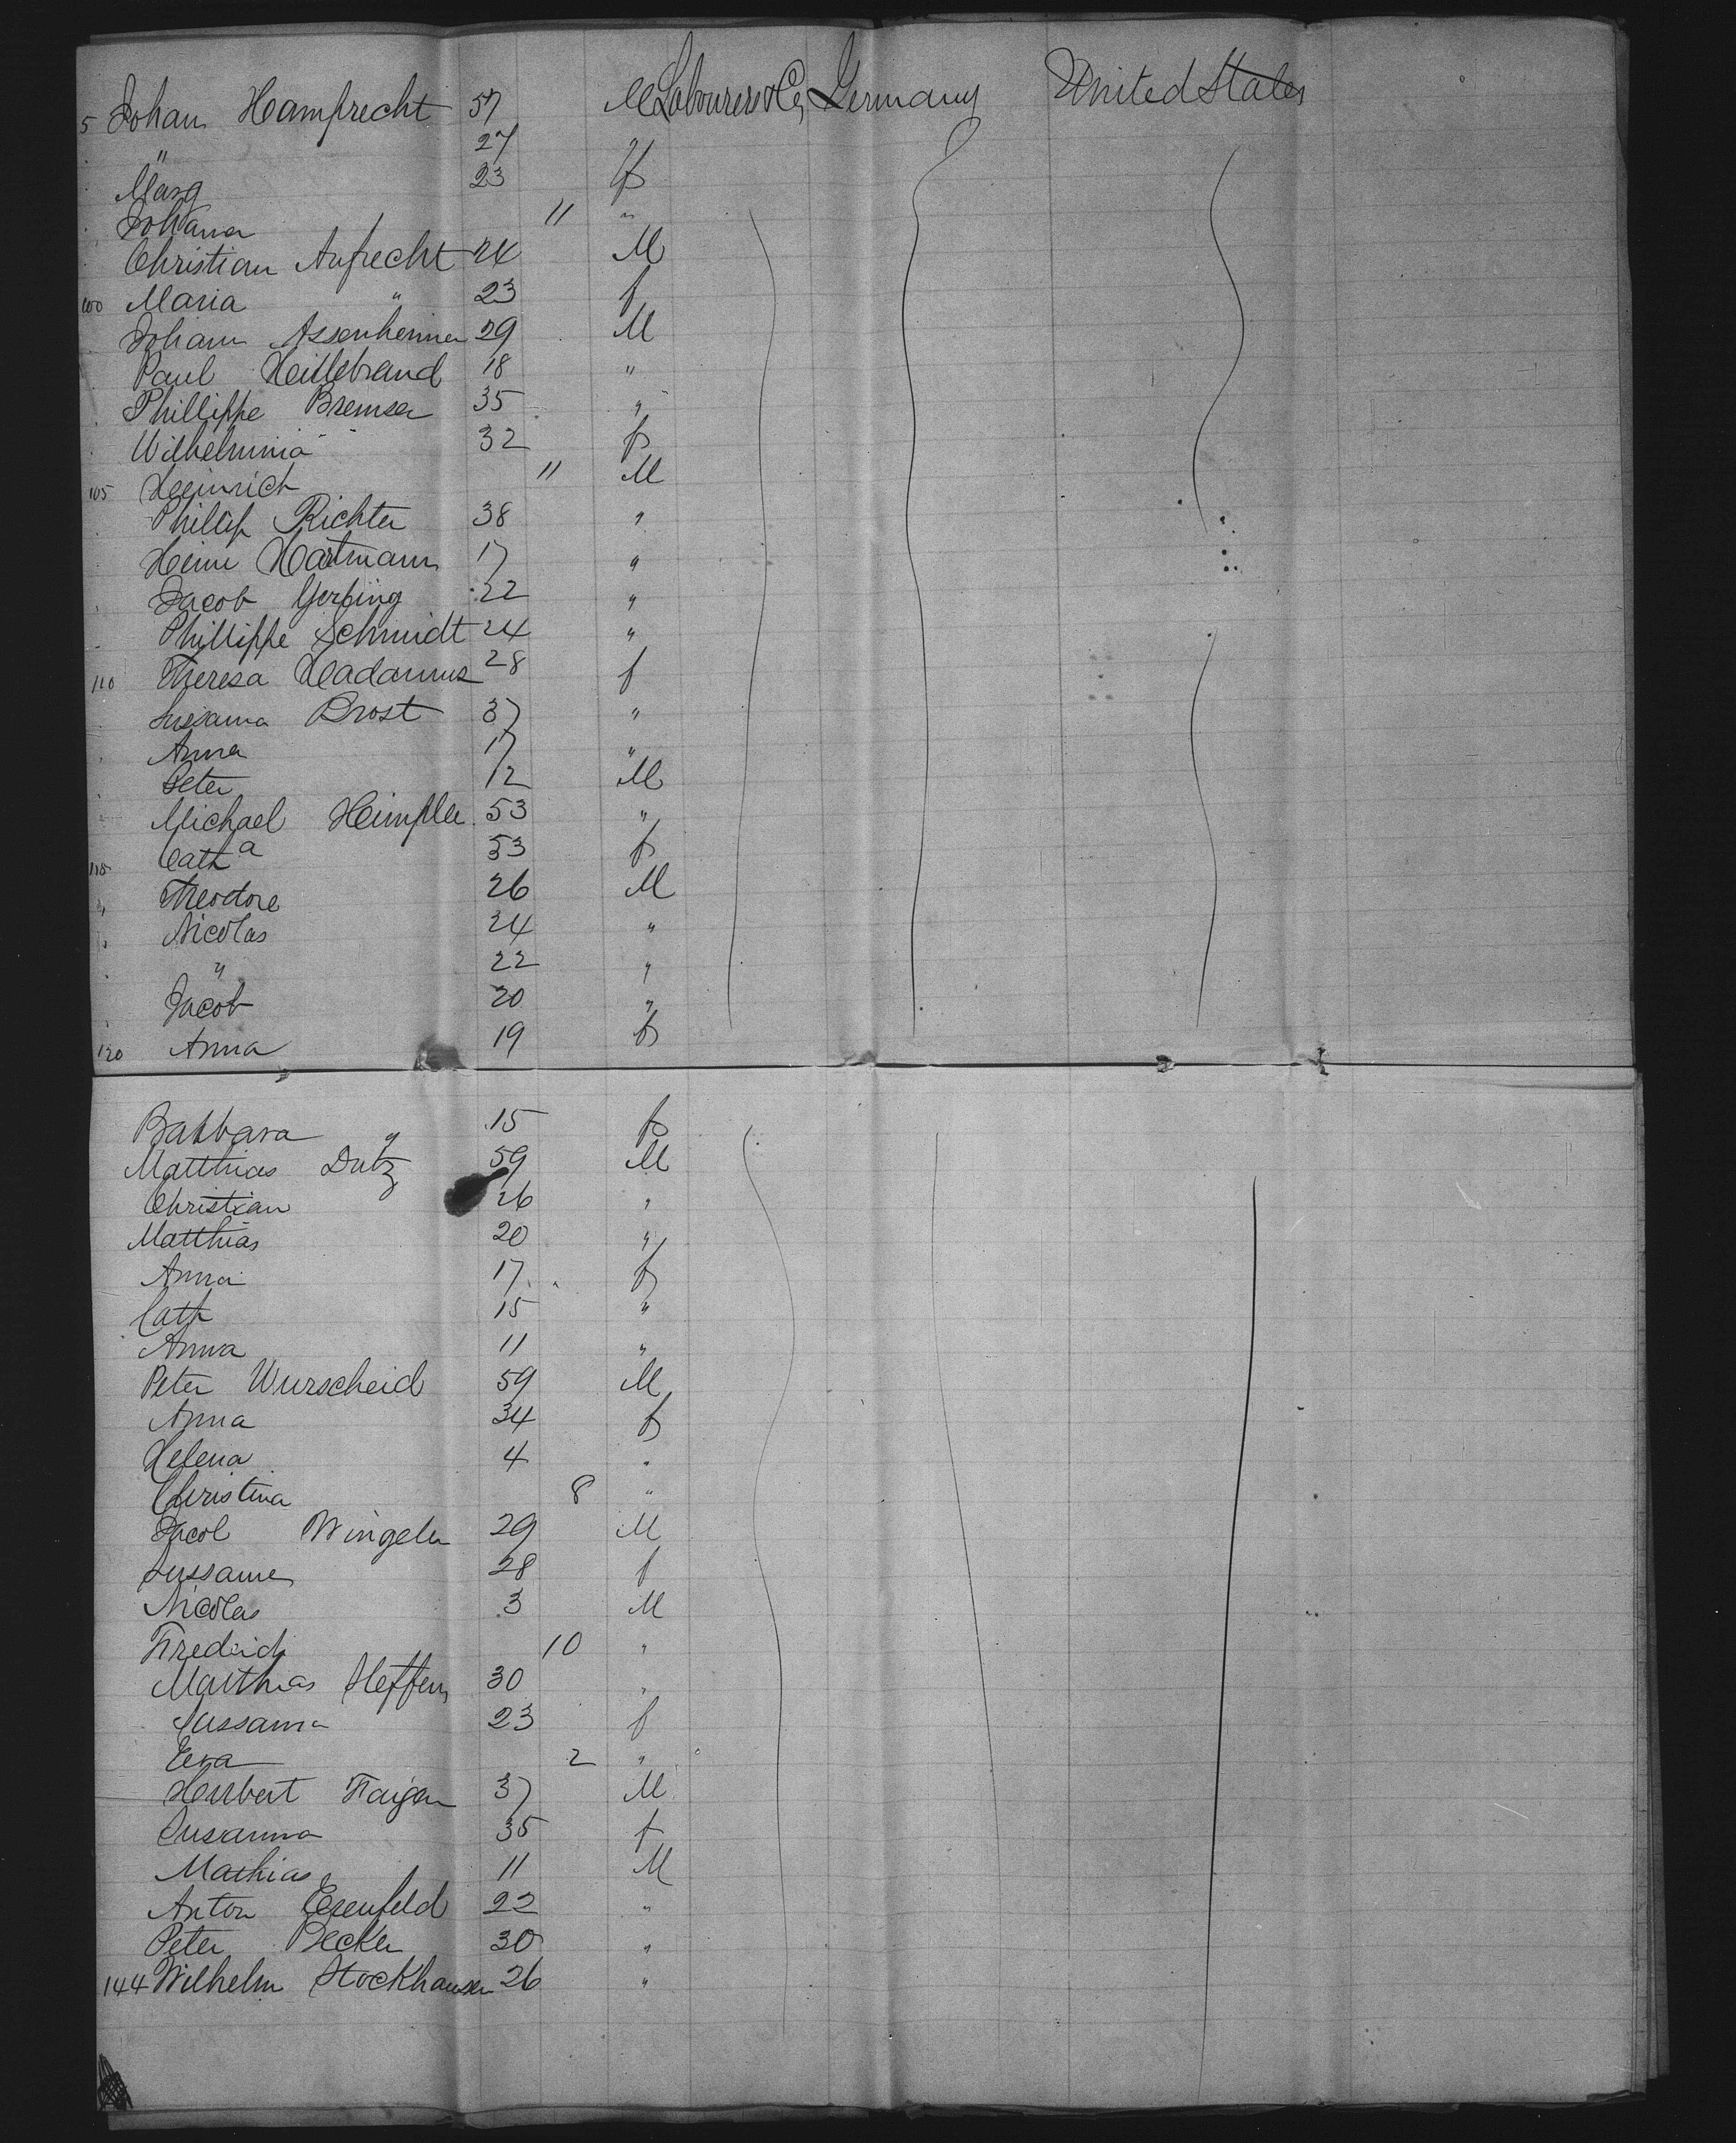 5 Johan Hamprecht 57 M Labourers &c Germany United States
" 27 "
Marg 23 f
Johana 11 "
Christian Aufrecht 24 M
100 Maria " 23 f
Johann Assenheimer 29 M
Paul Heillebrand 18 "
Phillippe Bremser 35 "
Wilhelminia 32 f
105 Heinrich 11 M
Phillip Richter 38 "
Heinr Hartmann 17 "
Jacob Gerbing 22 "
Phillippe Schmidt 24 "
110 Theresa Hadamus 28 f
Sussanna Brost 37 "
Anna 17 "
Peter 12 M
Michael Heimpler 53 "
115 Catha 53 f
Theodore 26 M
Nicolas 24 "
" 22 "
Jacob 20 "
120 Anna 19 f
Barbara " 15 f
Matthias Dutz 59 M
Christian 26 "
Matthias 20 "
Anna 17 f
Cath 15 "
Anna 11 "
Peter Wurscheid 59 M
Anna 34 f
Helena 4 "
Christina 8 "
Jacob Wingeler 29 M
Sussanne 28 f
Nicolas 3 M
Friedrich 10 "
Matthias Steffens 30 "
Sussanna 23 f
Eva 2 "
Herbert 37 M
Susanna 35 f
Mathias 11 M
Anton Esenfeld 22 "
Peter Becker 30 "
144 Wilhelm Stockhausen 26 "